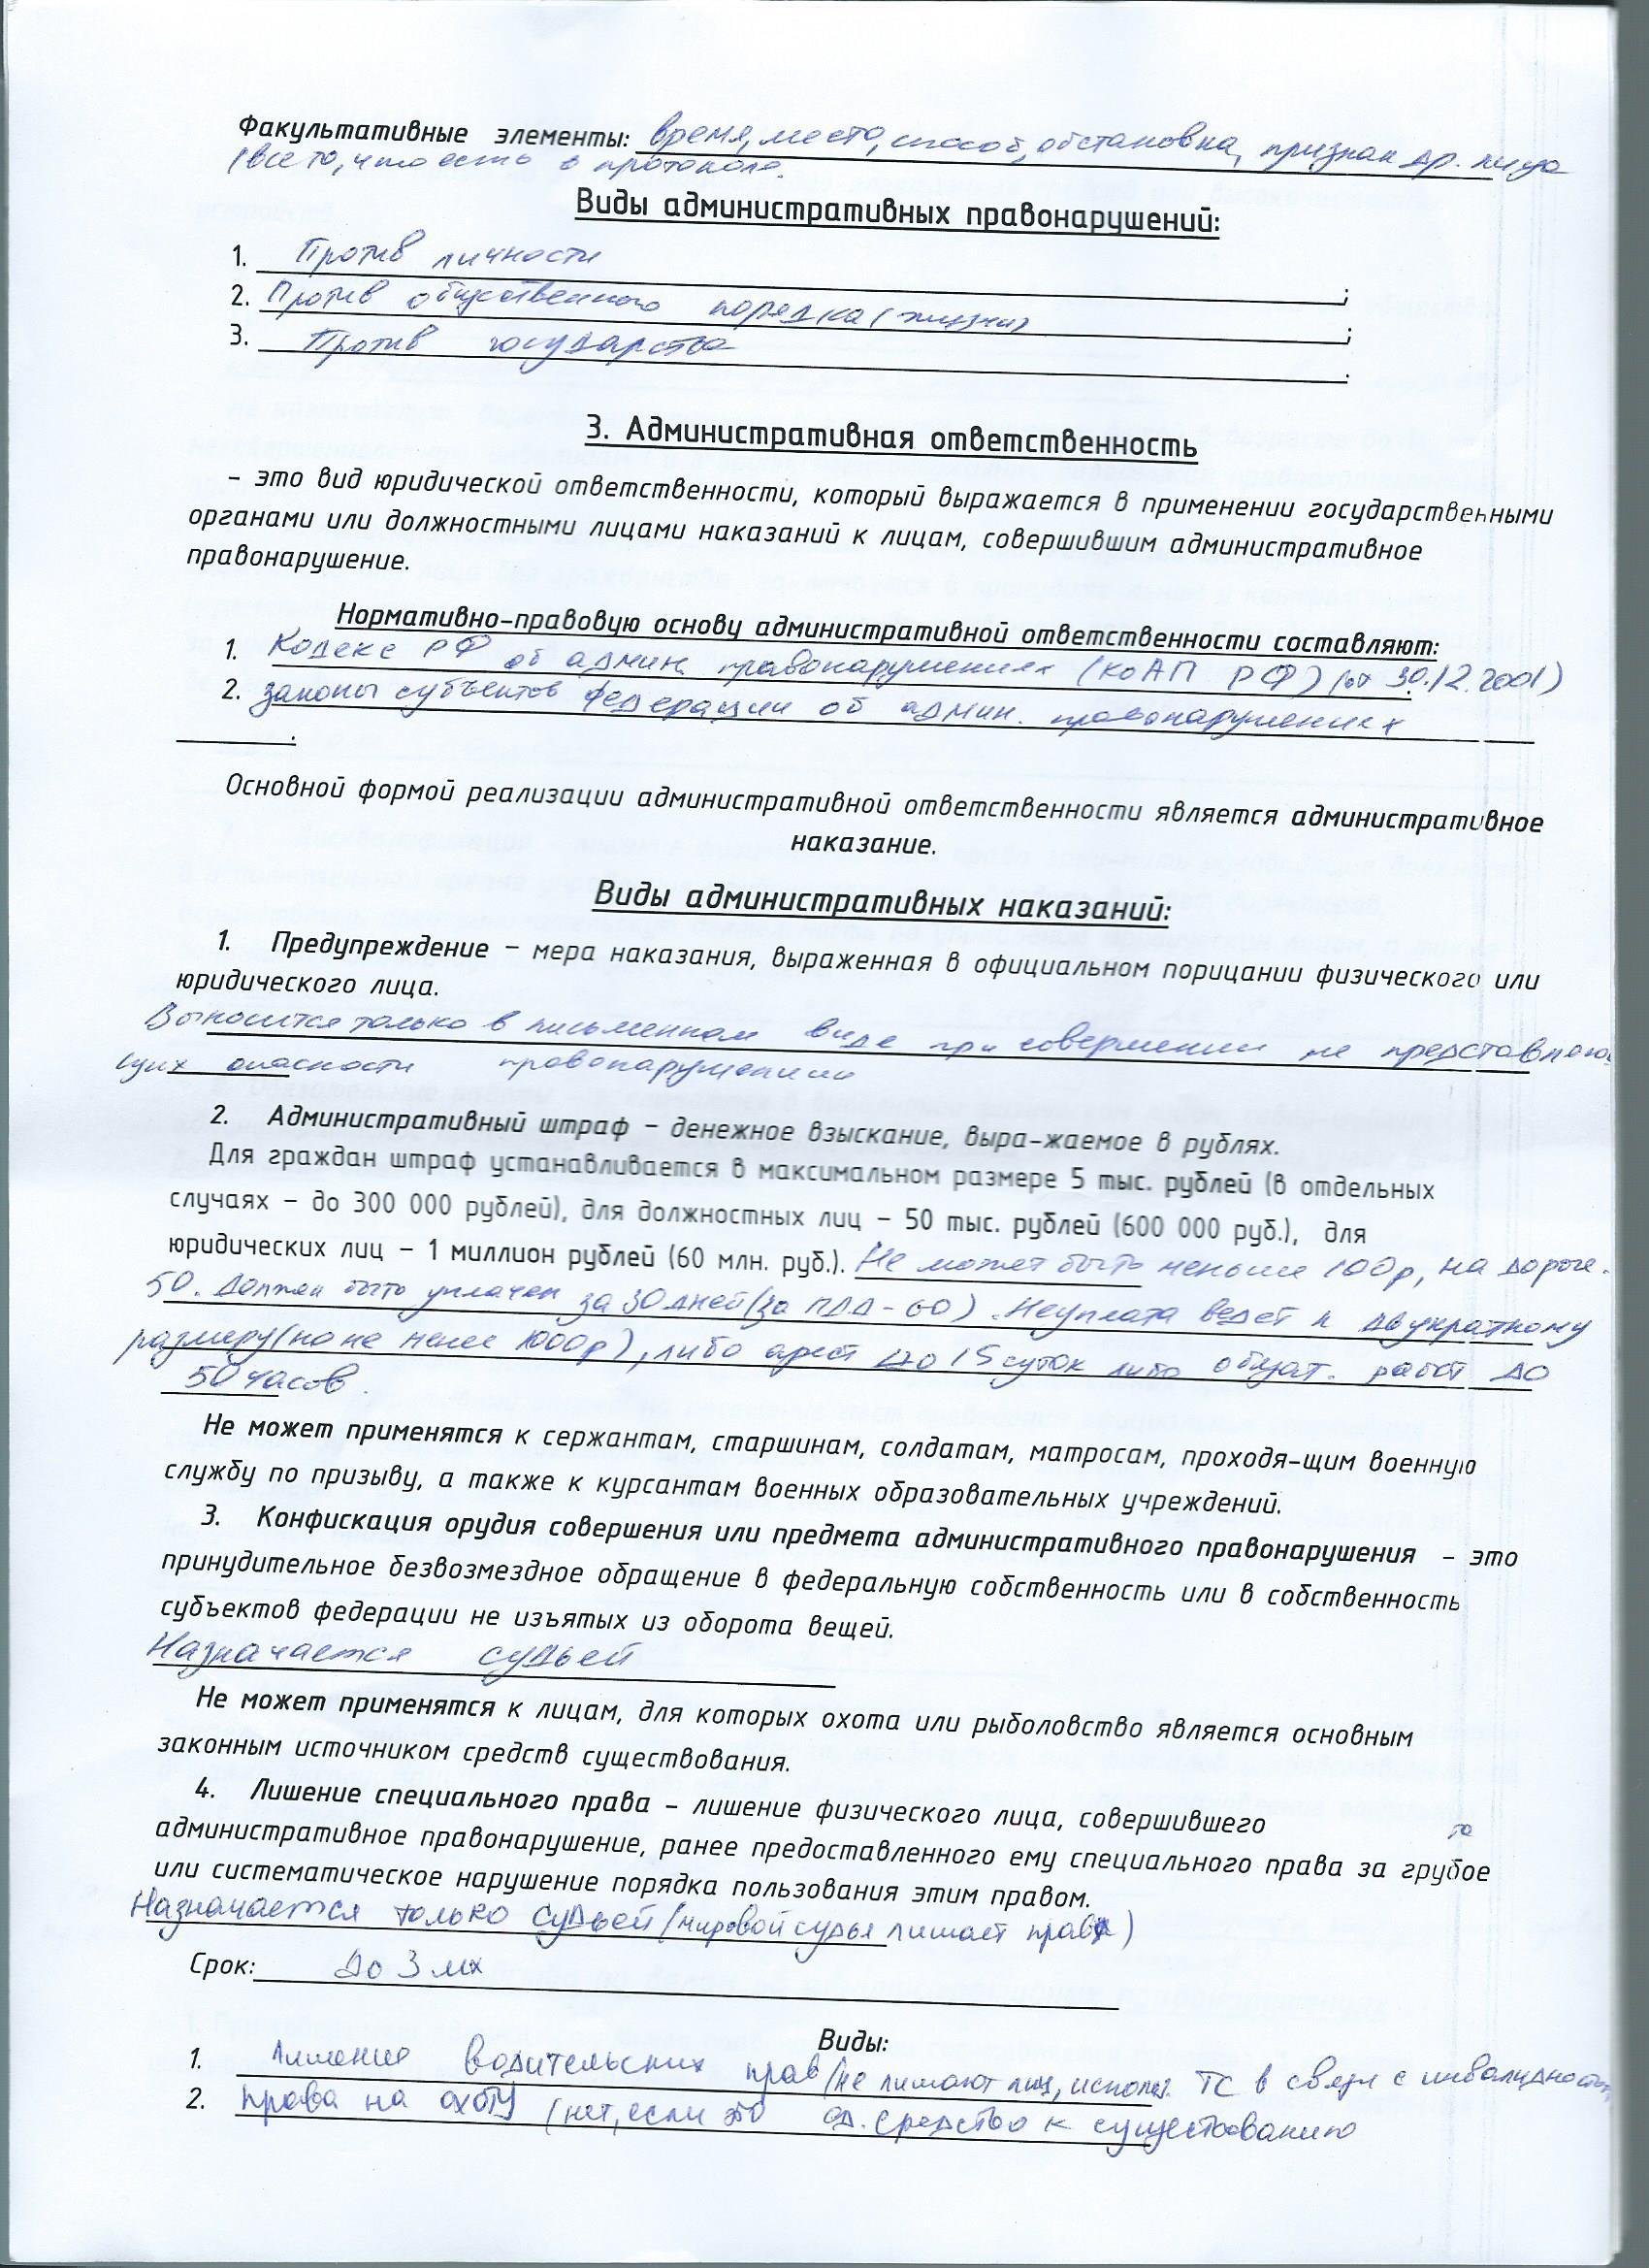 Факультативные элементы: время, место, способ, обстановка, признак др. лица
(все то, что есть в протоколе.
Виды административных правонарушений:
1. Против личности ;
2. Против общественного порядка (жизни) ;
3. Против государства .
3. Административная ответственность
– это вид юридической ответственности, который выражается в применении государственными
органами или должностными лицами наказаний к лицам, совершившим административное
правонарушение.
Нормативно-правовую основу административной ответственности составляют:
1. Кодекс РФ об админ. правонарушениях (КоАП РФ) (от 30.12.2001)
2. законы субъектов Федерации об админ. правонарушениях
.
Основной формой реализации административной ответственности является административное
наказание.
Виды административных наказаний:
1. Предупреждение – мера наказания, выраженная в официальном порицании физического или
юридического лица.
Выносится только в письменном виде при совершении не представляю
щих опасности правонарушений
2. Административный штраф – денежное взыскание, выра-жаемое в рублях.
Для граждан штраф устанавливается в максимальном размере 5 тыс. рублей (в отдельных
случаях – до 300 000 рублей), для должностных лиц – 50 тыс. рублей (600 000 руб.), для
юридических лиц – 1 миллион рублей (60 млн. руб.). Не может быть меньше 100р, на дороге.
50. Должен быть уплачен за 30 дней (за ПДД - 60). Неуплата ведет к двукратному
размеру (но не менее 1000р), либо арест до 15 суток либо обязат. работ до
50 часов.
Не может применятся к сержантам, старшинам, солдатам, матросам, проходя-щим военную
службу по призыву, а также к курсантам военных образовательных учреждений.
3. Конфискация орудия совершения или предмета административного правонарушения – это
принудительное безвозмездное обращение в федеральную собственность или в собственность
субъектов федерации не изъятых из оборота вещей.
Назначается судьей
Не может применятся к лицам, для которых охота или рыболовство является основным
законным источником средств существования.
4. Лишение специального права – лишение физического лица, совершившего
административное правонарушение, ранее предоставленного ему специального права за грубое
или систематическое нарушение порядка пользования этим правом.
Назначается только судьей (мировой судья лишает прав)
Срок: До 3 лет
Виды:
1. Лишение водительских прав (не лишают лиц, использ. ТС в связи с инвалидностью
2. права на охоту (нет, если это ед. средство к существованию